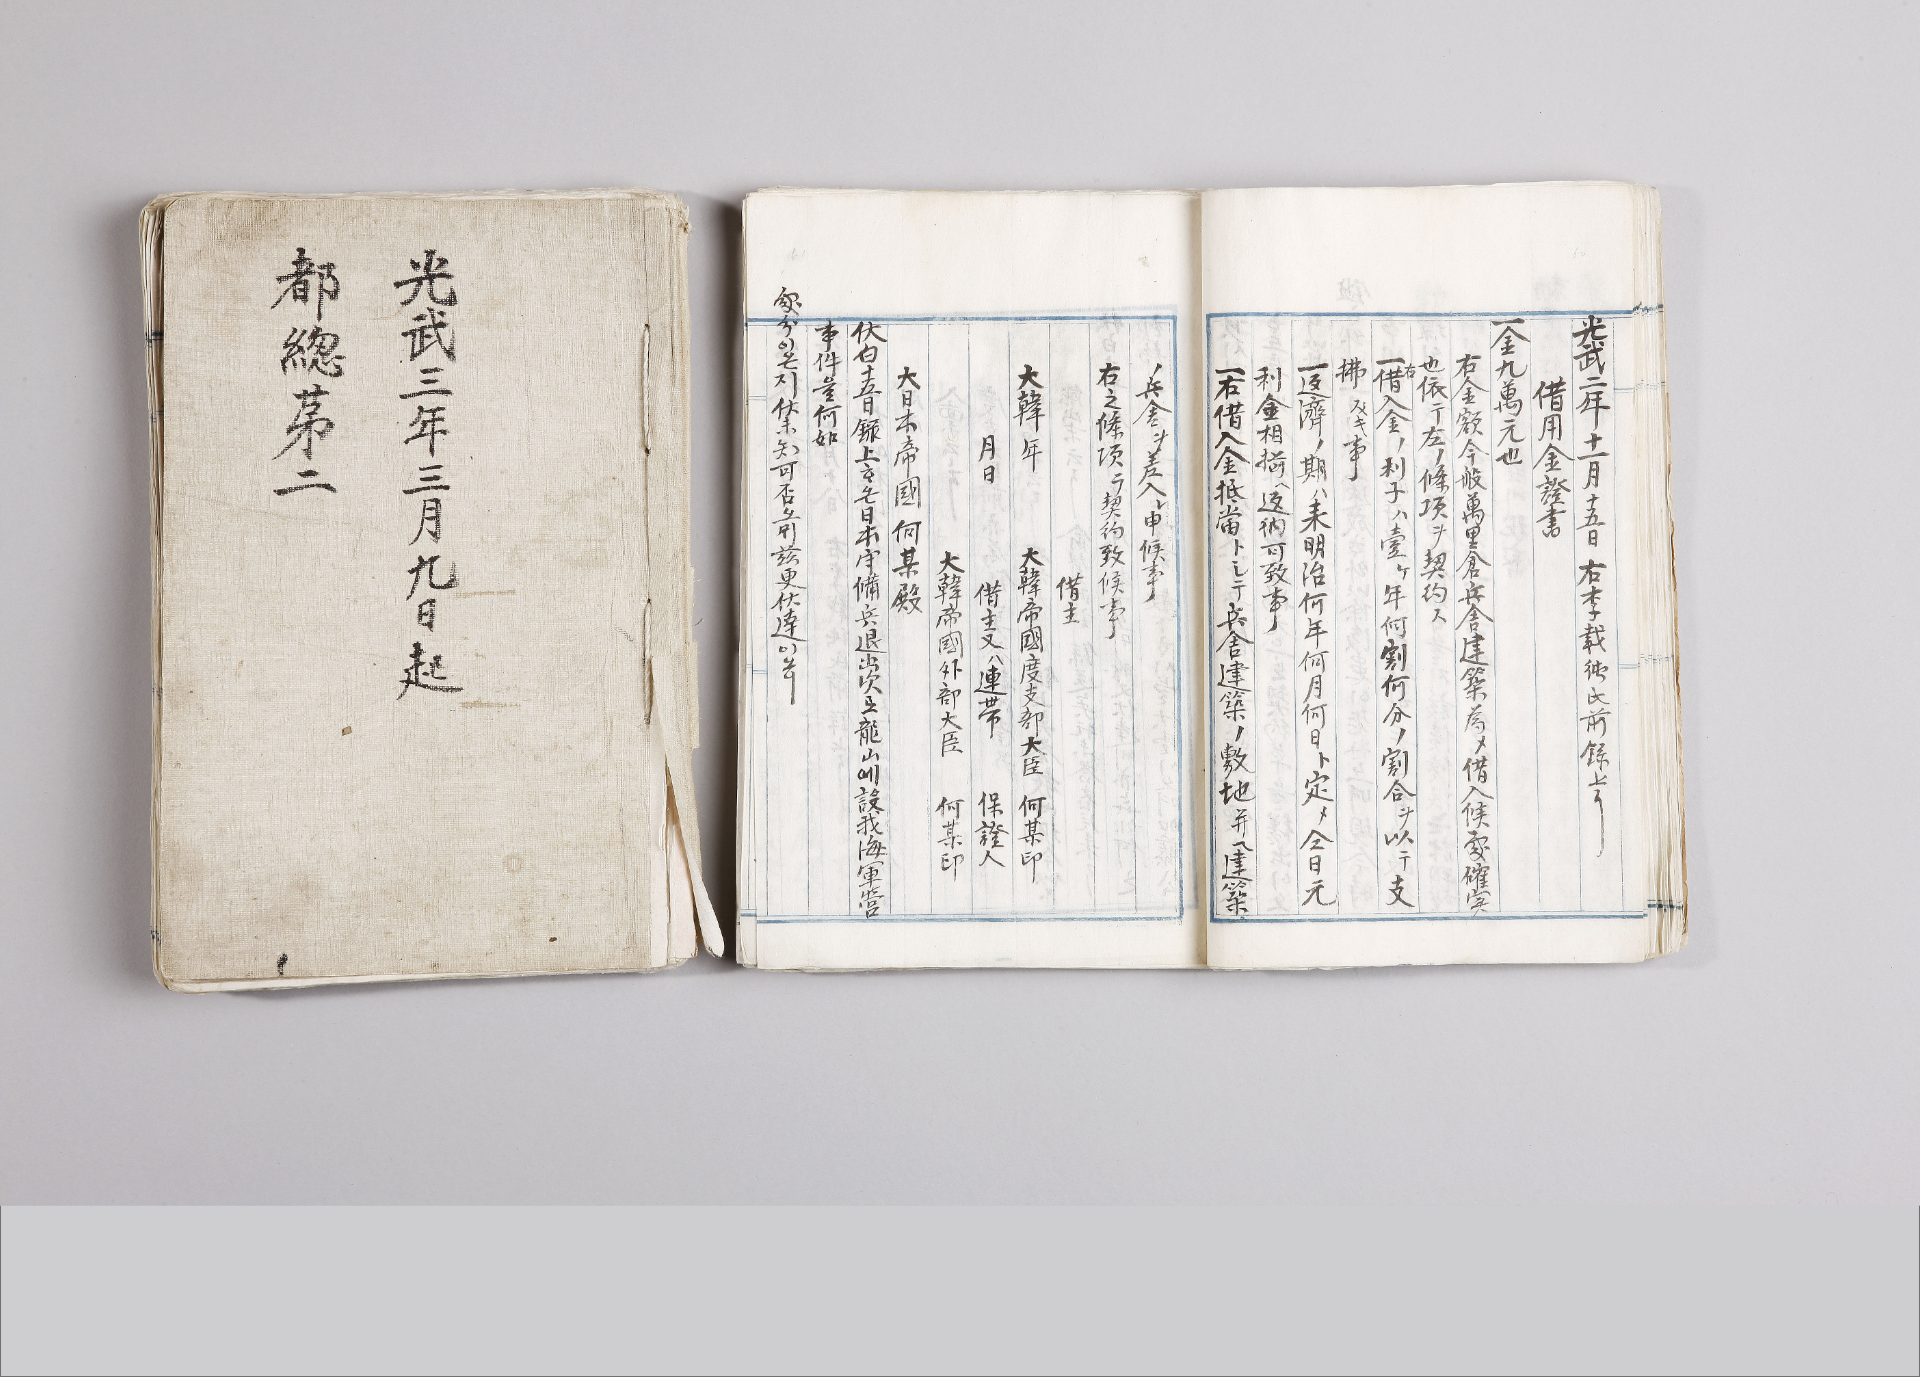 光武三年三月九日起
都總苐二
光武二年十一月十五日 右李載純氏前錄上
借用金證書
一金九萬元也
右金額今般萬里倉兵舍建築為メ借入候處確実
也依テ左ノ條項ヲ契約ス
一右借入金ノ利子ハ壹ケ年何割何分ノ割合ヲ以テ支
拂フベキ事
一返濟ノ期ハ来明治何年何月何日ト定メ仝日元
利金相揃ヘ返納可致事
一右借入金抵當トシテ兵舍建築ノ敷地并ヘ建築
ノ兵舍ヲ差入レ申候事
右之條項ヲ契約致候事
借主
大韓 年 大韓帝國度支部大臣 何某印
月日 借主又ハ連帶 保證人
大韓帝國外部大臣 何某印
大日本帝國 何某殿
伏白十五日錄上 日本守備兵退出次 龍山에設我海軍營
事件 何如
處分이온지伏未知可否 茲更伏達이